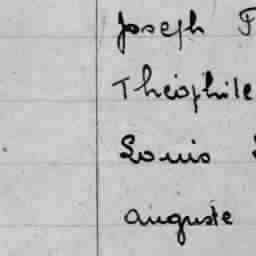 Joseph
Théophile
Louis
auguste